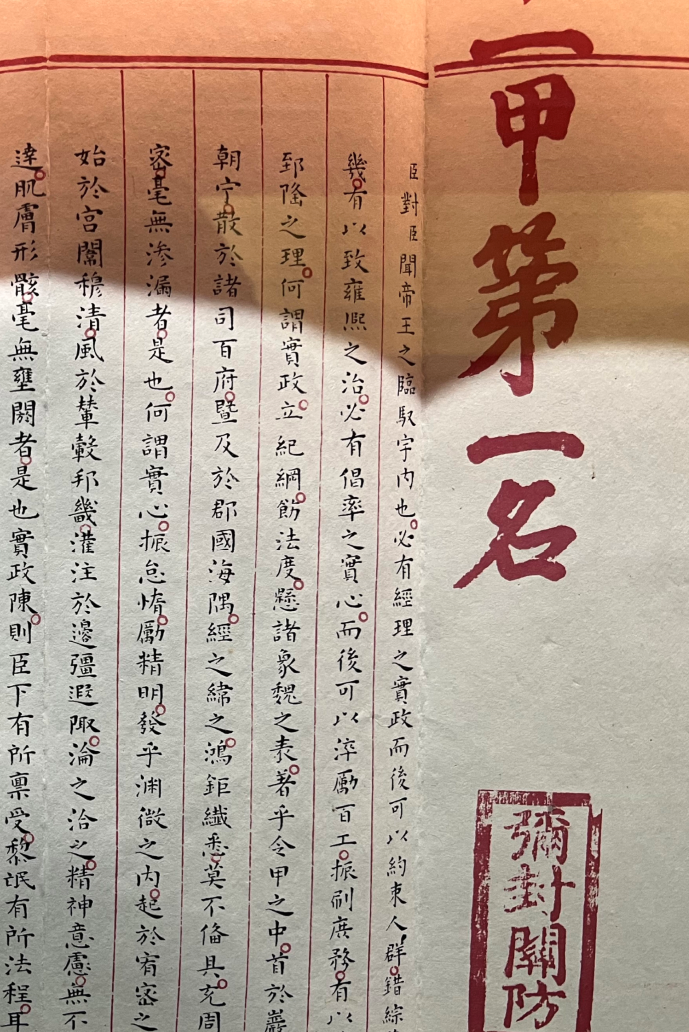 一甲第一名
彌封關防
臣對臣聞帝王之臨馭宇内也必有經理之實政而後可以約束人群錯綜
幾有以致雍熙之治必有倡率之實心而後可以淬厲百工振刷庶務有以
郅隆之理何謂實政立紀綱飭法度懸諸象魏之表著乎令甲之中首於巖
朝宁散於諸司百府暨及於郡國海隅經之緯之鴻鉅纖悉莫不備具充周
密毫無滲漏者是也何謂實心振怠惰勵精明發乎淵微之内起於宥密之
始於宮闈穆清風於輦轂邦畿灌注於邊疆遐陬淪之洽之精神意慮無不
達肌膚形骸毫無壅閼者是也實政陳則臣下有所禀受黎氓有所法程耳